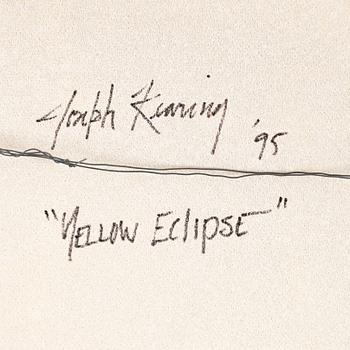 Joseph Kinnig '95
"Yellow Eclipse"